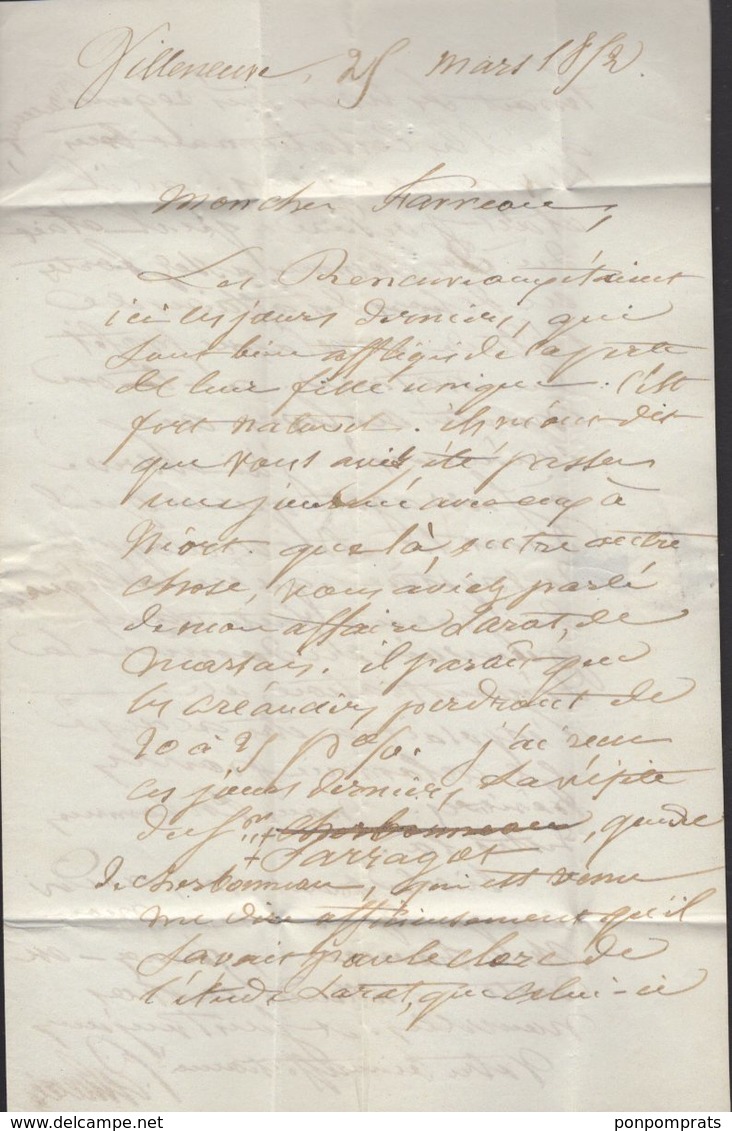 Villeneuve, 25 mars 1852.
Mon cher Farreau,
Les étaient
ici ces jours derniers, qui
sont bien affligés de la perte
de leur fille unique. C'est
fort naturel. ils m'ont dit
que vous aviez été passer
une journée avec eux à
Niort. que là entre autre
chose, vous aviez parlé
de mon affaire Larat, de
Marsais. il parait que
les créanciers perdront de
20 à 25 p%. j'ai reçu
ces jours derniers la visite
du Sr. + Cherbonneau, gendre
+ Farragot
de cherbonneau, qui est venu
me dire officieusement qu'il
savait par le clerc de
l'étude Larat, que celui-ci
ponpomprats